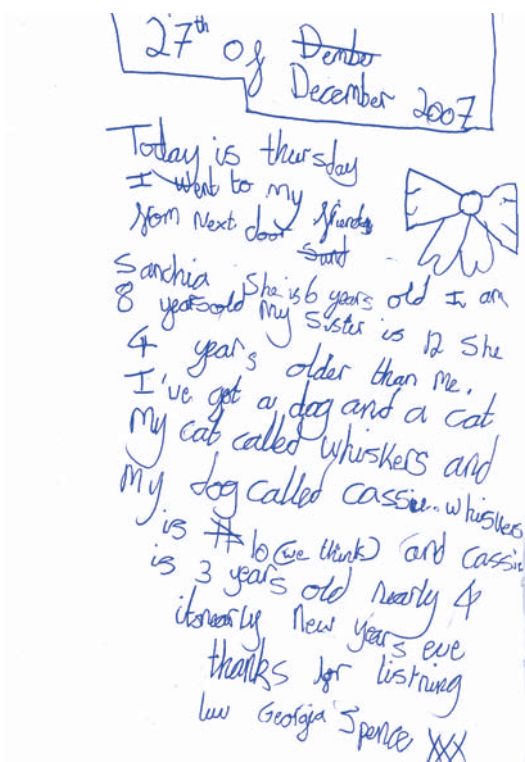 27th of Dember
December 2007
Today is thursday
I went to my
from Next door friends
Sand
Sanchia She is 6 years old I am
8 years old My Sister is 12 She
4 years older than me.
I've got a dog and a cat
My cat called whiskers and
My dog called cassie.. whiskers
is 11 10 (we think) and cassie
is 3 years old nearly 4
its nearly New years eve
thanks for listning
luv Georgia Spence XXX